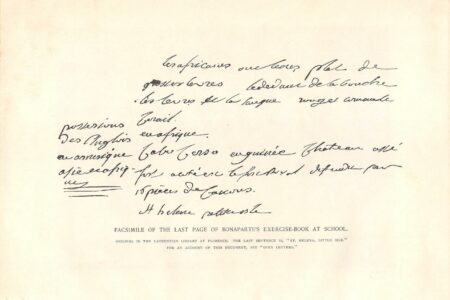 les africains plat de
levres le dedant de la bouche
les levres et la langue rouges comme le
Corail
possessions
des Anglois
en amerique
asie et afri
que
en afrique.
Cabo Corso en guinée Chateau assé
fort a coté est le fort royal defendu par
16 pièces de Canons.
St helene petite isle
FACSIMILE OF THE LAST PAGE OF BONAPARTE'S EXERCISE-BOOK AT SCHOOL.
ORIGINAL IN THE LAURENTIAN LIBRARY AT FLORENCE. THE LAST SENTENCE IS, "ST. HELENA, LITTLE ISLE."
FOR AN ACCOUNT OF THIS DOCUMENT, SEE "OPEN LETTERS."